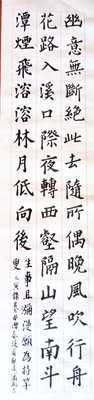 幽意無斷絕此去隨所偶晚風吹行舟
花路入溪口際夜轉西壑隔山望南斗
潭煙飛溶溶林月低向後
生事且彌漫願為持竿
叟